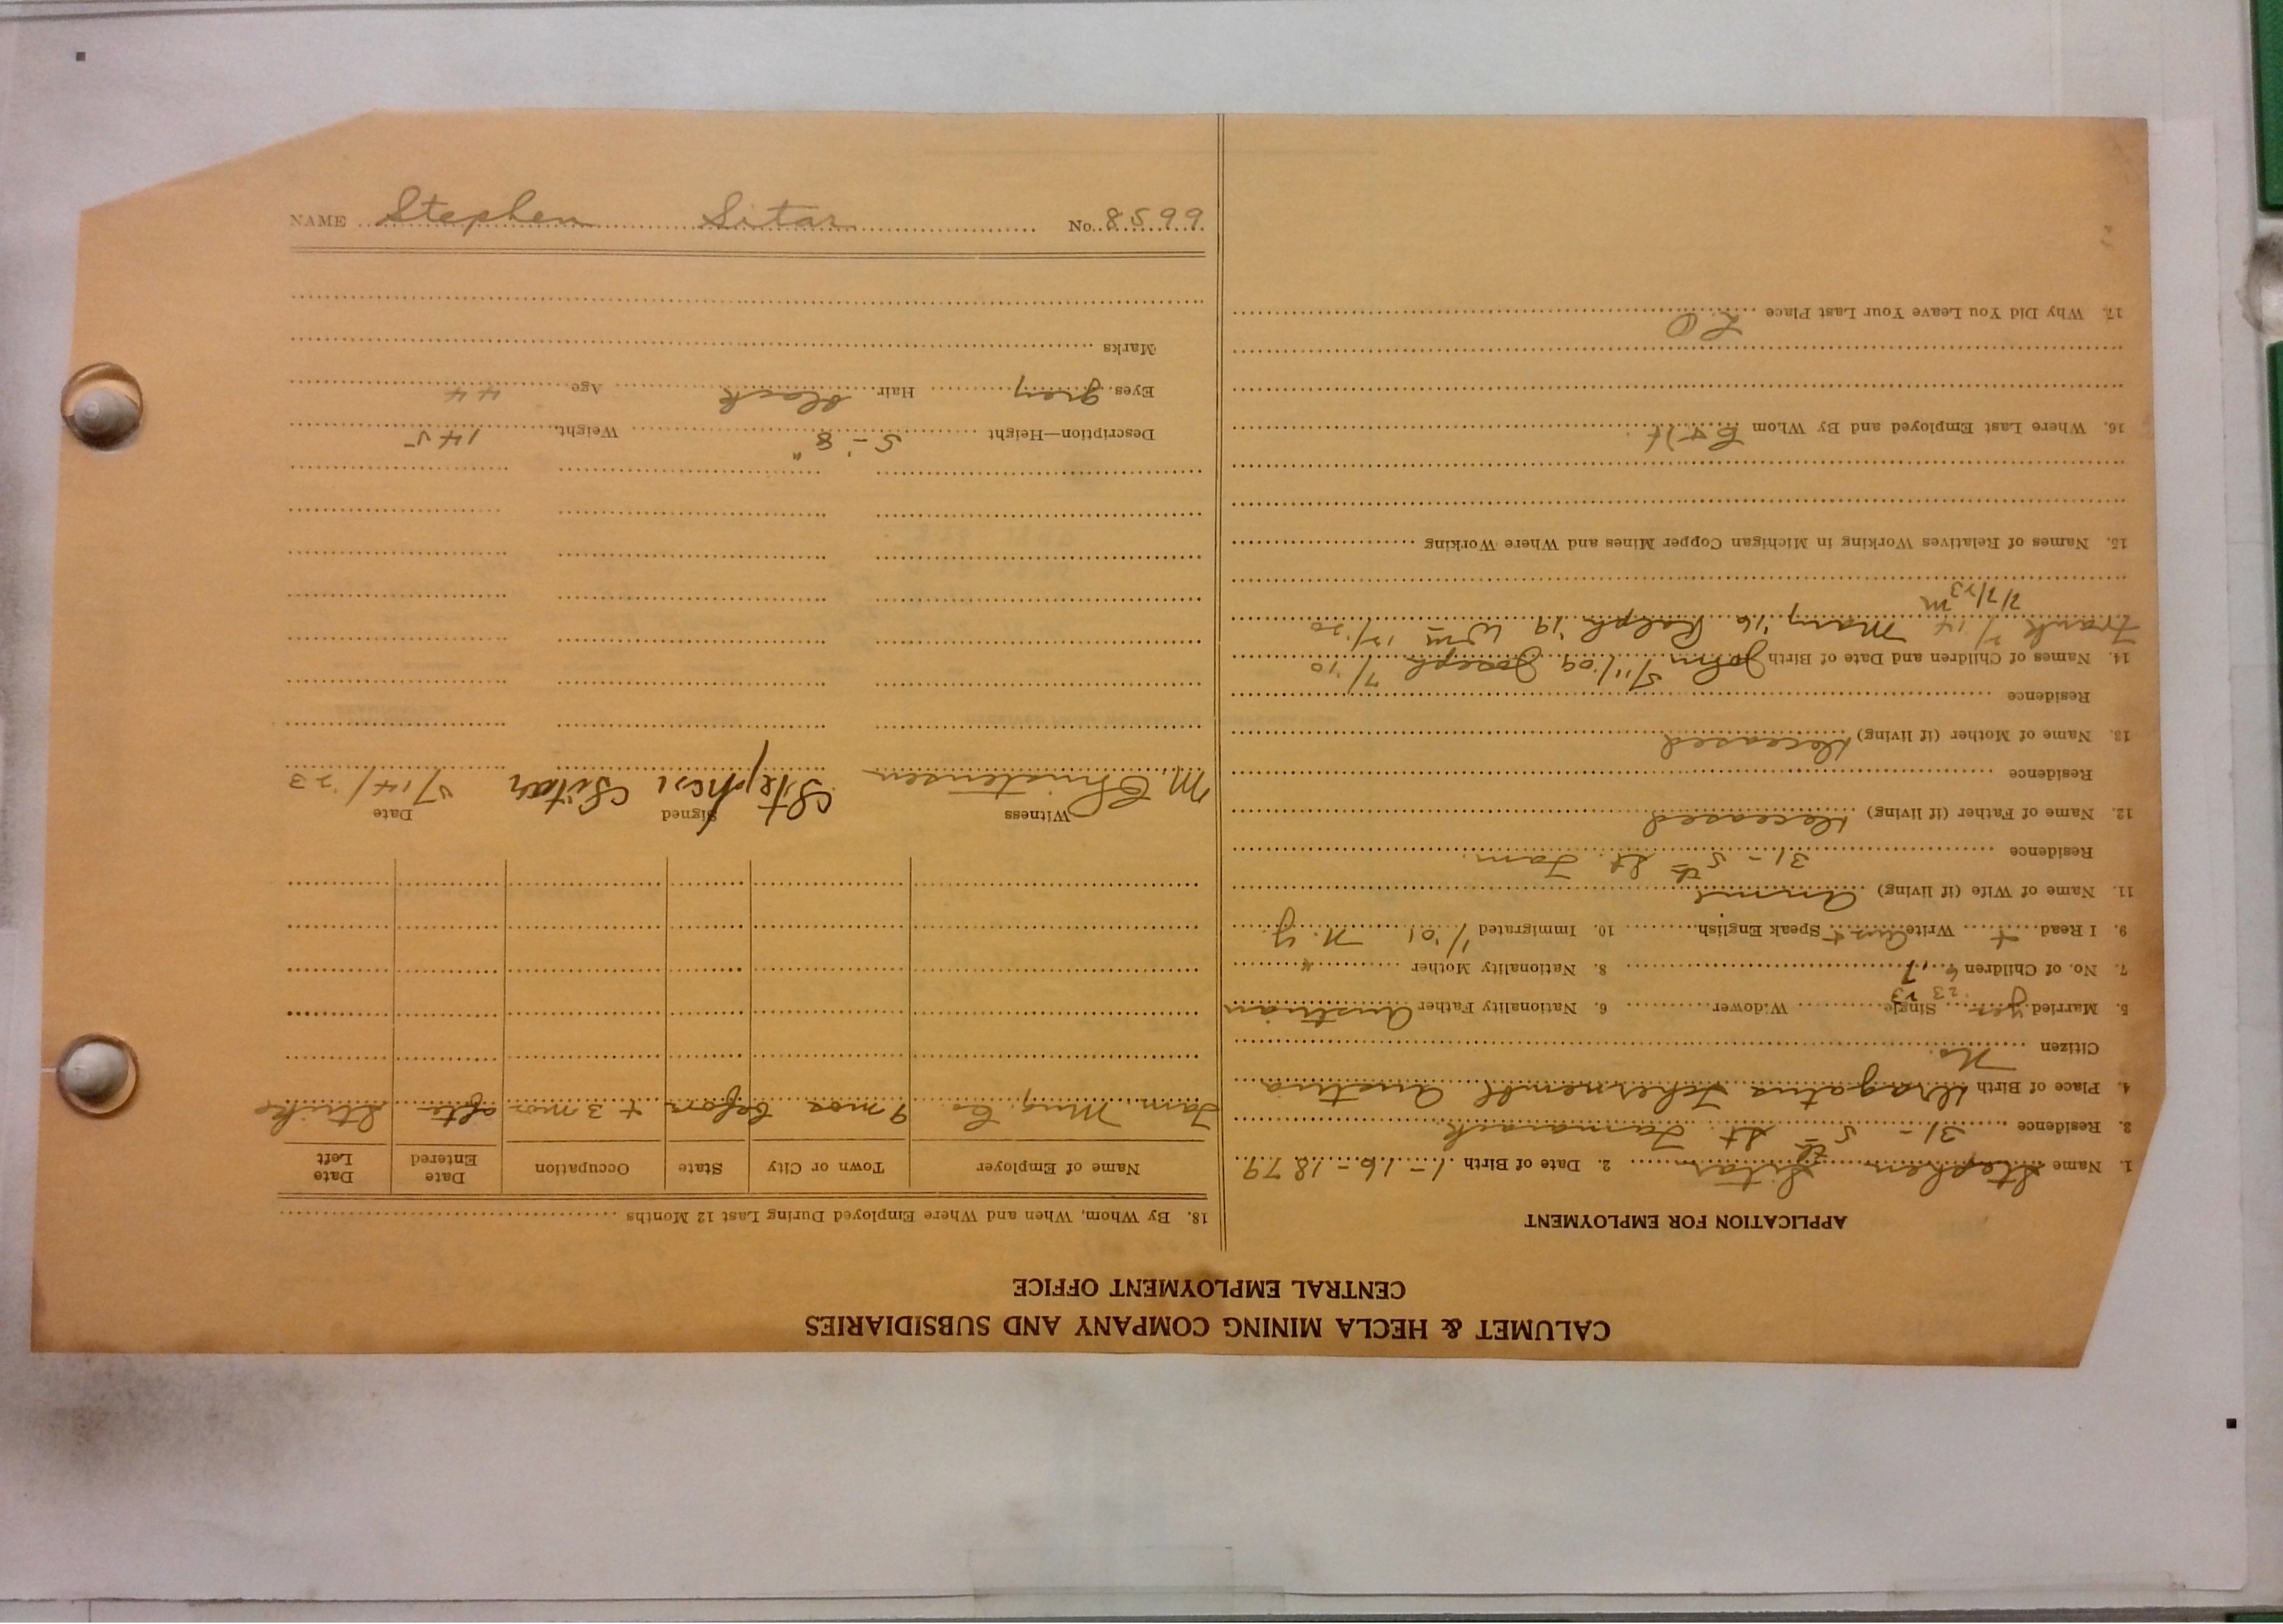 CALUMET & HECLA MINING COMPANY AND SUBSIDIARIES
CENTRAL EMPLOYMENT OFFICE
APPLICATION FOR EMPLOYMENT
1. Name Stephen Sitar 2. Date of Birth 1-16-1879
3. Residence 31- 5th St. Tamarack
4. Place of Birth Tchernembl Austria
Citizen No.
5. Married yes Single Widower 6. Nationality Father Austrian
7. No. of Children 6, 7 8. Nationality Mother "
9. I Read + Write Aust Speak English 10. Immigrated 1/'01 N. Y.
11. Name of Wife (if living) Anna
Residence 31- 5th St. Tam.
12. Name of Father (if living) Deceased
Residence
13. Name of Mother (if living) Deceased
Residence
14. Names of Children and Date of Birth John 5/11/09 Joseph 7/'10
Frank 2/'14 Mary '16 Ralph '19 Wm 12/'20
M 7/7/23
15. Names of Relatives Working in Michigan Copper Mines and Where Working
16. Where Last Employed and By Whom C & H
17. Why Did You Leave Your Last Place LO
18. By Whom, When and Where Employed During Last 12 Months
Name of Employer Town or City State Occupation Date Entered Date Left
Tam. Mng. Co 9 mos before + 3 mos after Strike
Witness Signed Date
M. Christensen Stephen Sitar 5/14/23
Description—Height 5-'8" Weight 145
Eyes grey Hair black Age 44
Marks
NAME Stephen Sitar No. 8599